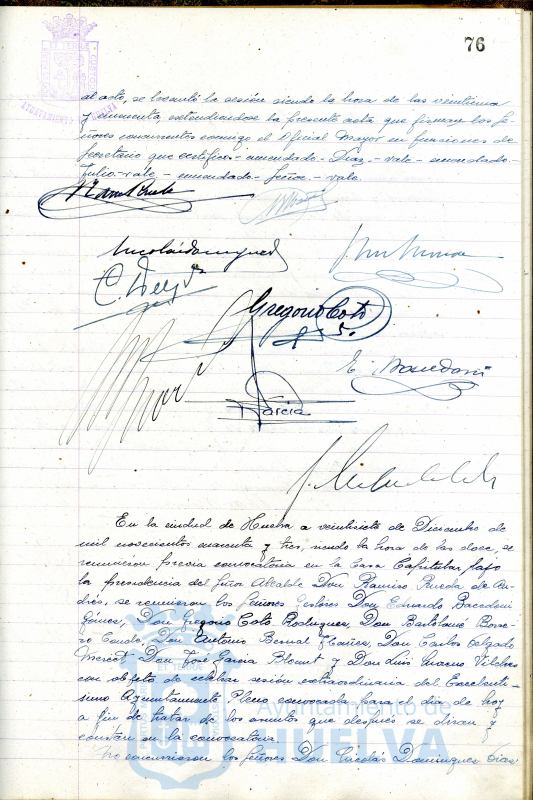 76
al acto, se levantó la sesión siendo la hora de las veintiuna
y cincuenta, extendiéndose la presente acta que firman los Se-
ñores concurrentes conmigo el Oficial Mayor en funciones de
Secretario que certifico.- enmendado- Díaz.- vale- enmendado-
Julio-vale- enmendado- Señor- vale.
Nicolás Dominguez
Gregorio Coto
E. Bacedoni
García
En la ciudad de Huelva a veintisiete de Diciembre de
mil novecientos cuarenta y tres, siendo la hora de las doce, se
reunieron previa convocatoria en la Casa Capitular, bajo
la presidencia del Señor Alcalde Don Ramiro Rueda de An-
drés, se reunieron los Señores Gestores Don Eduardo Bacedoni
Gómez, Don Gregorio Coto Rodriguez, Don Bartolomé Borre-
ro Conde, Don Antonio Bernal Don Carlos Delgado
Don José Garcia Blount y Don Luis Vilches
con objeto de celebrar sesión extraordinaria del Excelentí-
simo Ayuntamiento Pleno convocada para el día de hoy
a fin de tratar de los asuntos que después se dirán y
constan en la convocatoria.
No concurrieron los Señores Don Nicolás Dominguez Díaz
Ayuntamiento de
HUELVA